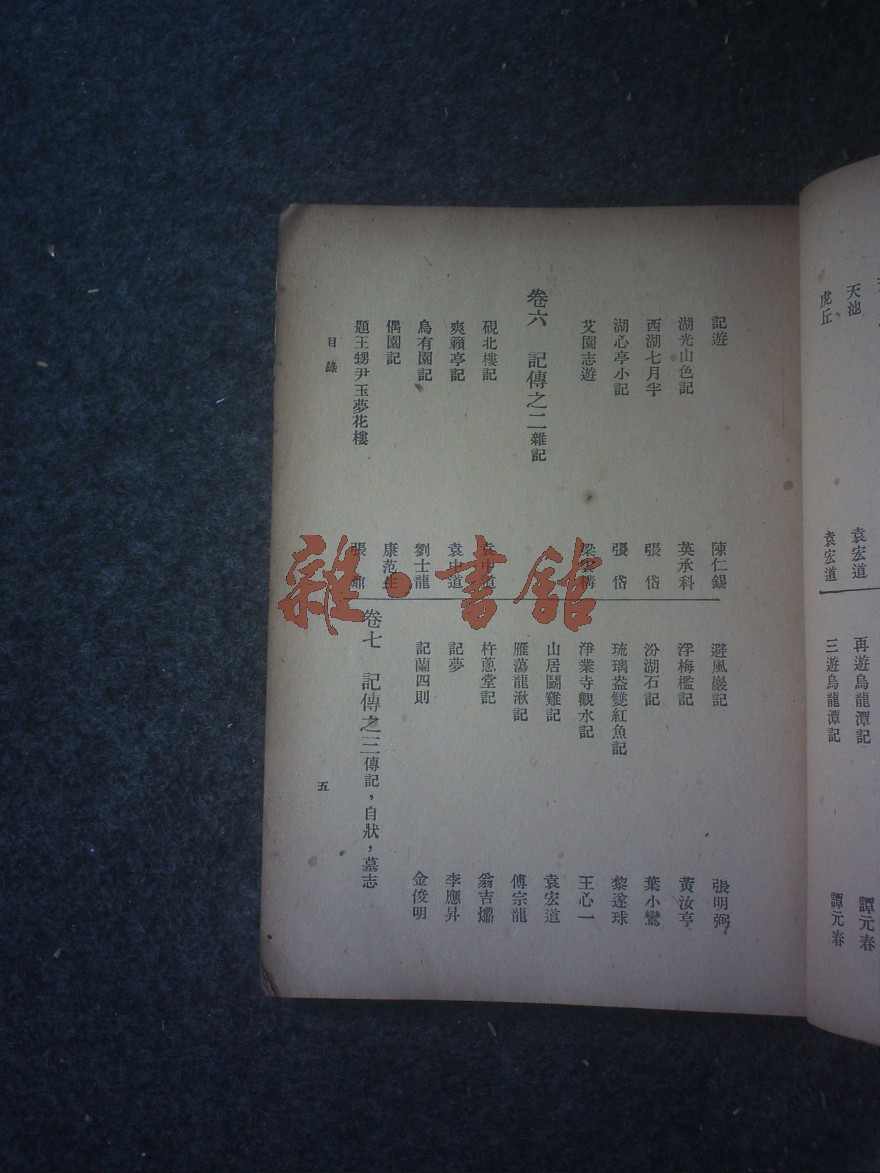 天池 袁宏道
虎丘 袁宏道
再遊烏龍潭記 譚元春
三遊烏龍潭記 譚元春
記遊 陳仁錫
湖光山色記 英承科
西湖七月半 張岱
湖心亭小記 張岱
艾園志遊 梁雲構
卷六 記傳之二雜記
硯北樓記 袁中道
爽籟亭記 袁中道
烏有園記 劉士龍
偶園記 康范生
題王甥尹玉夢花樓 張鼐
避風巖記 張明弼
浮梅檻記 黃汝亨
汾湖石記 葉小鸞
琉璃盎雙紅魚記 黎遂球
淨業寺觀水記 王心一
山居鬭雞記 袁宏道
雁蕩龍湫記 傅宗龍
杵蒽堂記 翁吉爜
記夢 李應昇
記蘭四則 金俊明
卷七 記傳之三傳記，自狀，墓志
目錄
五
雜·書館